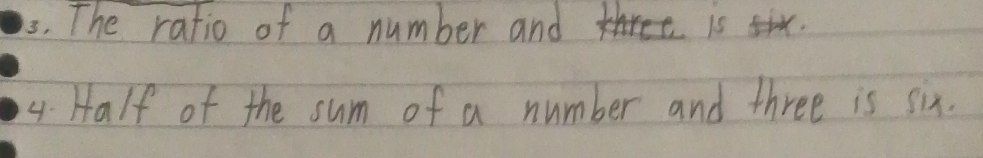 3. The ratio of a number and three is six.
4. Half of the sum of a number and three is six.